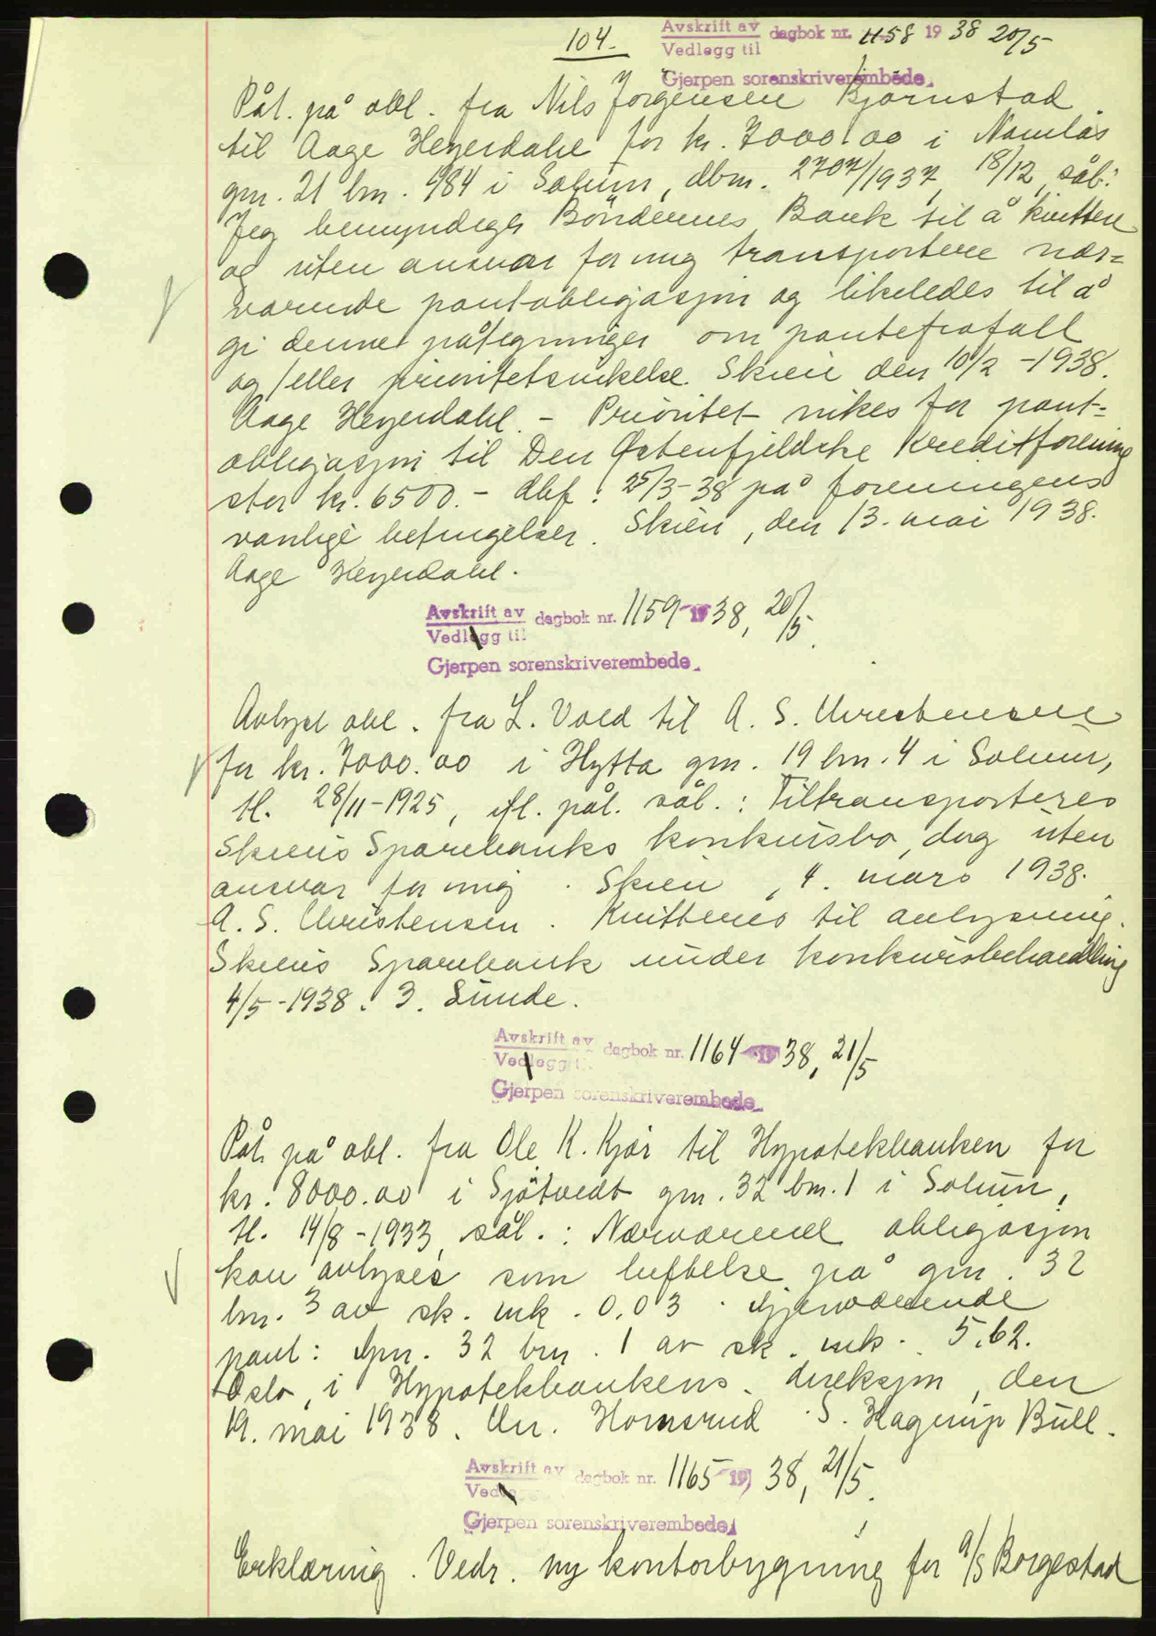 104.
Avskrift av
Vedlegg til dagbok nr. 1158 1938 20/5
Gjerpen sorenskriverembede.
Påt. på obl. fra Nils Jørgensen Bjørnstad
til Aage Heyerdahl for kr. 7000.00 i Namlås
gnr. 21 bnr. 484 i Solum, dbnr. 2707/1937, 18/12, sål.:
Jeg bemyndiger Bøndernes Bank til å kvittere
og uten ansvar for mig transportere nær=
værende pantobligasjon og likeledes til å
gi denne påtegninger om pantefrafall
og /eller prioritetsvikelse. Skien den 10/2 - 1938.
Aage Heyerdahl. - Prioritet vikes for pant=
obligasjon til Den Østenfjeldske Kreditforening
stor kr. 6500.- dbf: 25/3-38 på foreningens
vanlige betingelser. Skien, den 13. mai 1938.
Aage Heyerdahl.
Avskrift av
Vedlegg til dagbok nr. 1159 - 1938, 20/5.
Gjerpen sorenskriverembede.
Avlyst obl. fra L. Vold til A. S. Christensen
for kr. 7000.00 i Hytta gnr. 19 bnr. 4 i Solum,
tl. 28/11-1925, ifl. påt. sål.: Tiltransporteres
Skiens Sparebanks konkursbo, dog uten
ansvar for mig. Skien, 4. mars 1938.
A. S. Christensen. Kvitteres til avlysning.
Skiens Sparebank under konkursbehandling
4/5-1938. 3. Sunde.
Avskrift av
Vedlegg til dagbok nr. 1164 - 1938, 21/5
Gjerpen sorenskriverembede.
Påt. på obl. fra Ole K. Kjær til Hypotekbanken for
kr. 8000.00 i Sjøtvedt gnr. 32 bnr. 1 i Solum,
tl. 14/8-1933, sål.: Nærværende obligasjon
kan avlyses som heftelse på gnr. 32
bnr. 3 av sk. mk. 0.03. Gjenværende
pant: Gnr. 32 bnr. 1 av sk. mk. 5.62.
Oslo, i Hypotekbankens direksjon, den
19. mai 1938. Chr. Hornsrud. S. Hagerup Bull.
Avskrift av
Vedlegg dagbok nr. 1165 - 1938, 21/5.
Gjerpen sorenskriverembede
Erklæring. Vedr. ny kontorbygning for A/S Borgestad